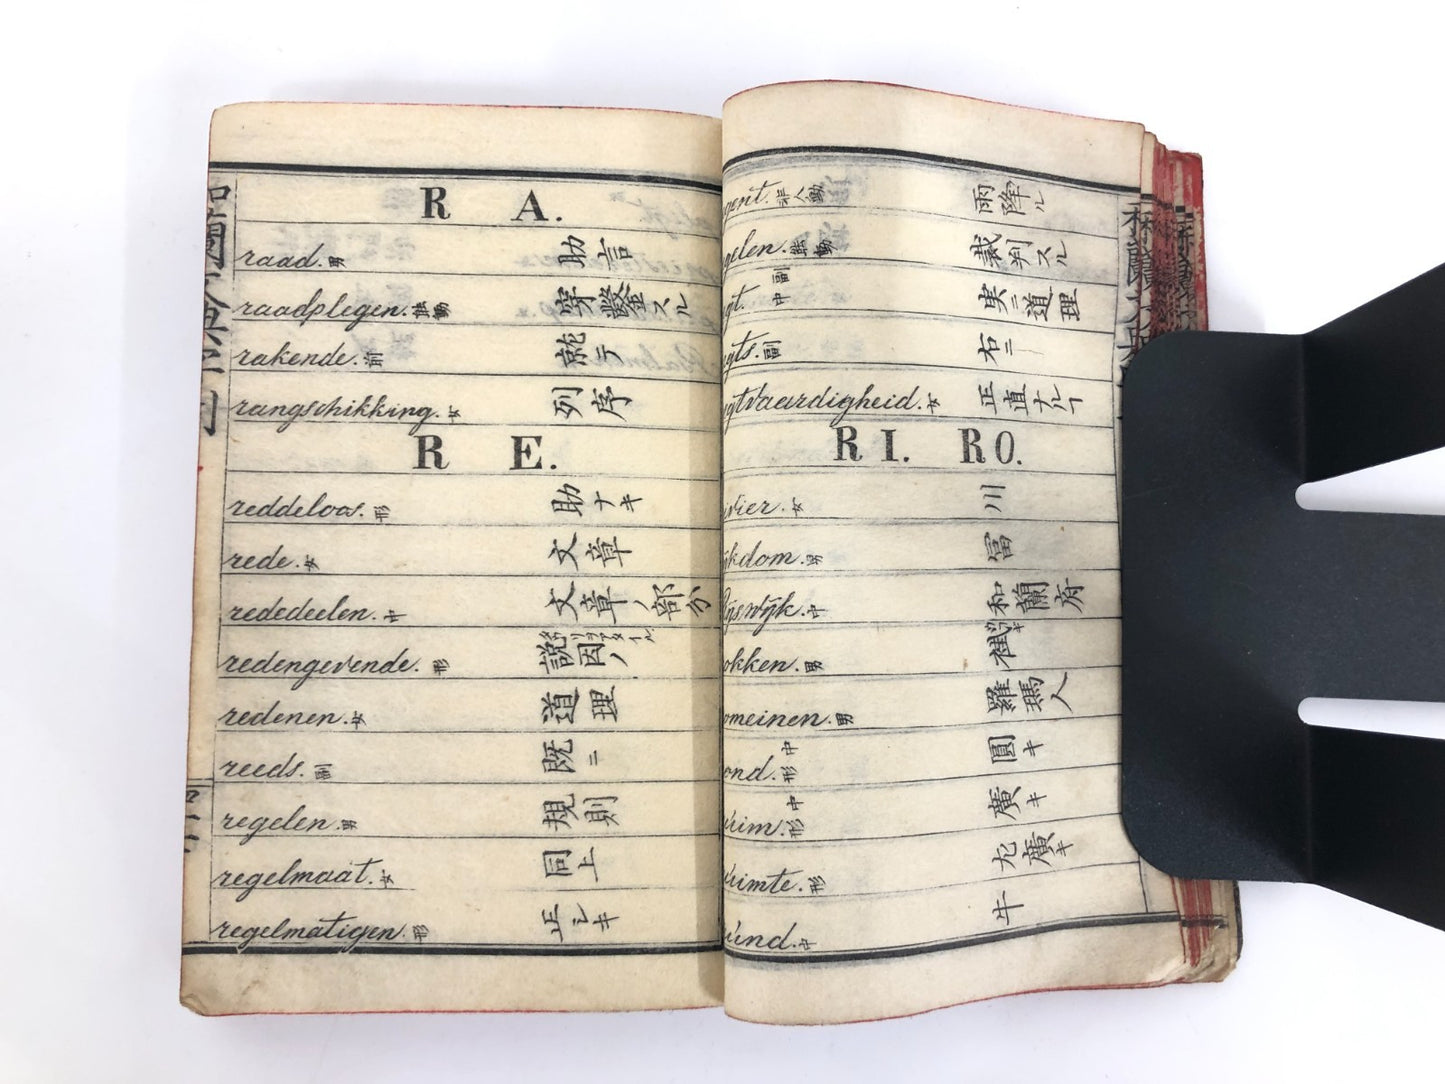 R A.
raad. 男 助言
raadplegen. 能動 穿鑿スル
rakende. 前 就テ
rangschikking. 女 列序
R E.
reddeloos. 形 助ナキ
rede. 女 文章
rededeelen. 中 文章ノ部分
redengevende. 形 説因ノ
redenen. 女 道理
reeds. 副 既ニ
regelen. 男 規則
regelmaat. 女 同上
regelmatigen. 形 正シキ
gent. 非人動 雨降ル
gelen. 能動 裁判スル
gt. 中 副 実ニ 道理
gts. 副 右ニ
gtvaardigheid. 女 正直ナルヿ
R I. R O.
ivier. 女 川
ijkdom. 男 冨
ijswijk. 中 和蘭府
okken. 男
omeinen. 男 羅瑪人
ond. 形 中 圓キ
uim. 形 中 廣キ
uimte. 形 広廣キ
und. 中 牛